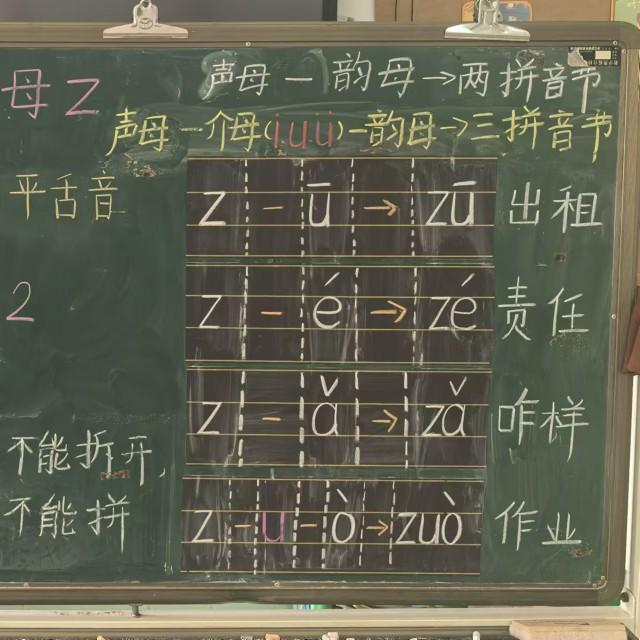 母 z
声母 — 韵母 → 两拼音节
声母 — 介母(i u ü) — 韵母 → 三拼音节
平舌音
z - ū → zū 出租
2
z - é → zé 责任
z - ǎ → zǎ 咋样
不能折开,
不能拼
z - u - ò → zuò 作业